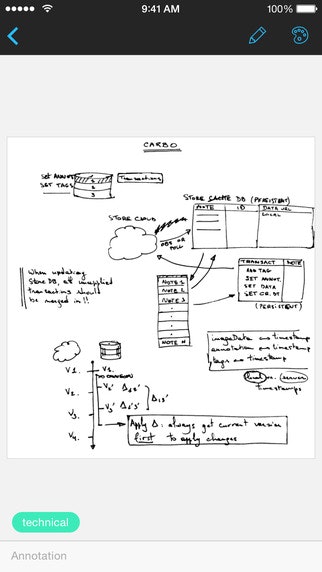 9:41 AM
100%
CARBO
SET ANNOT.
SET TAGS
1
2
3
Transactions
STORE CACHE DB (PERSISTENT)
NOTE
ID
DATA URL
LOCAL
STORE CLOUD
OR
POLL
When updating
Store DB, all unapplied
transactions should
be merged in !!
NOTE 1
NOTE 2
NOTE 3
NOTE N
TRANSACT
NOTE
ADD TAG
SET ANNOT.
SET DATA
SET CR. DT
(PERSISTENT)
imageData as timestamp
annotation as timestamp
tags as timestamp
local vs. server
timestamps
V1.
V2.
V3.
V4.
V1.
V2'
V3'
Δ12'
Δ2'3'
Δ13'
Apply Δ: always get current version
first to apply changes
technical
Annotation